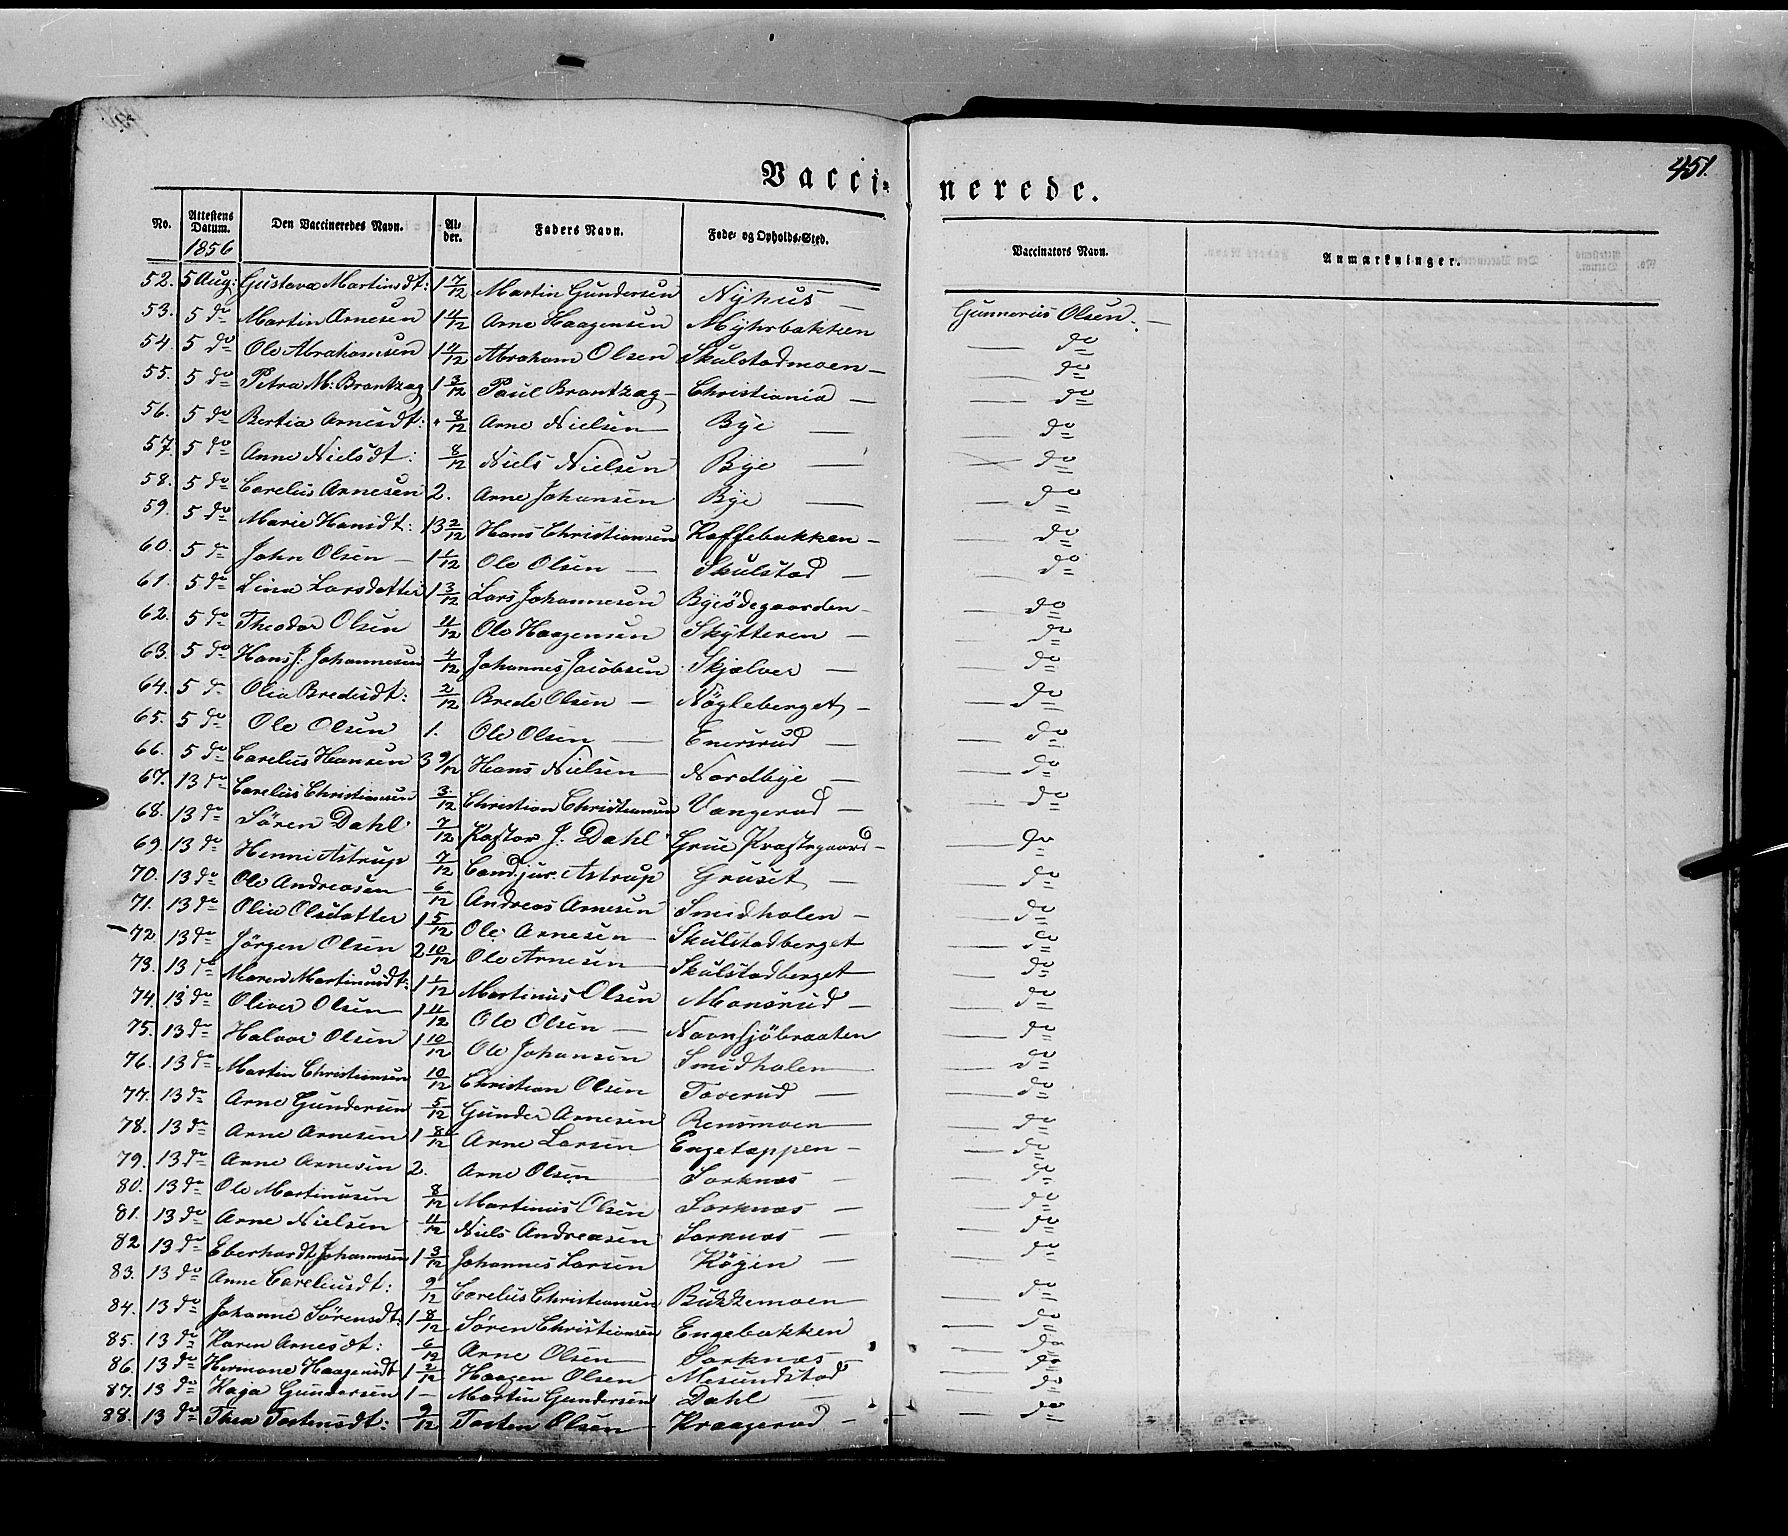 451.
Vacci- nerede.
No. Attestens Datum. Den Vaccineredes Navn. Al-der. Faders Navn. Føde- og Opholds-Sted. Vaccinators Navn. Anmærkninger.
1856
52. 5 Aug: Gustava Martinsdt: 1 7/12 Martin Gundersen Nyhus — Gunnerius Olsen. —
53. 5 do Martin Arnesen 1 4/12 Arne Haagensen Myhrbakken — do
54. 5 do Ole Abrahamsen 1 4/12 Abraham Olsen Skulstadmoen — — do
55. 5 do Petra M: Brantzag 1 3/12 Paul Brantzag — Christiania — — do
56. 5 do Bertia Arnesdt: " 8/12 Arne Nielsen Bye — — do
57. 5 do Anne Nielsdt: 8/12 Niels Nielsen Bye — — do
58. 5 do Carelius Arnesen 2. Arne Johansen Bye — — do
59. 5 do Marie Hansdt: 13 2/12 Hans Christiansen Kaffebakken — — do
60. 5 do John Olsen — 1 1/12 Ole Olsen — Skulstad — — do
61. 5 do Lina Larsdatter 1 3/12 Lars Johannesen Byeödegaarden — — do
62. 5 do Theodor Olsen 4/12 Ole Haagensen Skytteren — — do
63. 5 do Hans J. Johannesen 4/12 Johannes Jacobsen Skjælver — — do
64. 5 do Olia Bredesdt: 2/12 Brede Olsen — Nögleberget — — do
65. 5 do Ole Olsen 1. Ole Olsen — Enersrud — — do
66. 5 do Carelius Hansen 3 9/12 Hans Nielsen Nordbye — — do
67. 13 do Carelius Christiansen 3/12 Christian Christiansen Vangerud — — do
68. 13 do Sören Dahl 7/12 Pastor J. Dahl Grue Præstegaard — — do
69. 13 do Henni Astrup 7/12 Cand. jur. Astrup Gruset — — do
70. 13 do Ole Andreasen 6/12 Andreas Arnesen Smidholen — — do
71. 13 do Olia Olsdatter 1 5/12 Ole Arnesen — Skulstadberget — do
72. 13 do Jörgen Olsen 2 10/12 Ole Arnesen — Skulstadberget — do
73. 13 do Maren Martinusdt: 1 1/12 Martinus Olsen Monsrud — — do
74. 13 do Oliver Olsen 1 4/12 Ole Olsen — Navnsjöbraaten — do
75. 13 do Halvor Olsen 1 10/12 Ole Johansen Smidholen — do
76. 13 do Martin Christiansen 10/12 Christian Olsen Toverud — — do
77. 13 do Arne Gundersen 5/12 Gunder Arnesen Rensmoen — do
78. 13 do Arne Arnesen 1 8/12 Arne Larsen Engetappen — — do
79. 13 do Arne Arnesen 2. Arne Olsen — Sorknæs — — do
80. 13 do Ole Martinusen 8/12 Martinus Olsen Sorknæs — — do
81. 13 do Arne Nielsen 4/12 Niels Andreasen Sorknæs — — do
82. 13 do Eberhardt Johannesen 1 3/12 Johannes Larsen Högen — — do
83. 13 do Anne Careliusdt: 9/12 Carelius Christiansen — do
84. 13 do Johanne Sörensdt: 1 8/12 Sören Christiansen Engebakken — do
85. 13 do Karen Arnesdt: 6/12 Arne Olsen — Sorknæs — do
86. 13 do Hermane Haagensdt 1 2/12 Haagen Olsen Mesundstad — do
87. 13 do Kaga Gundersen 1 — Martin Gundersen Dahl — — do
88. 13 do Thea Tostensdt: 9/12 Tosten Olsen — Kraagerud — — do